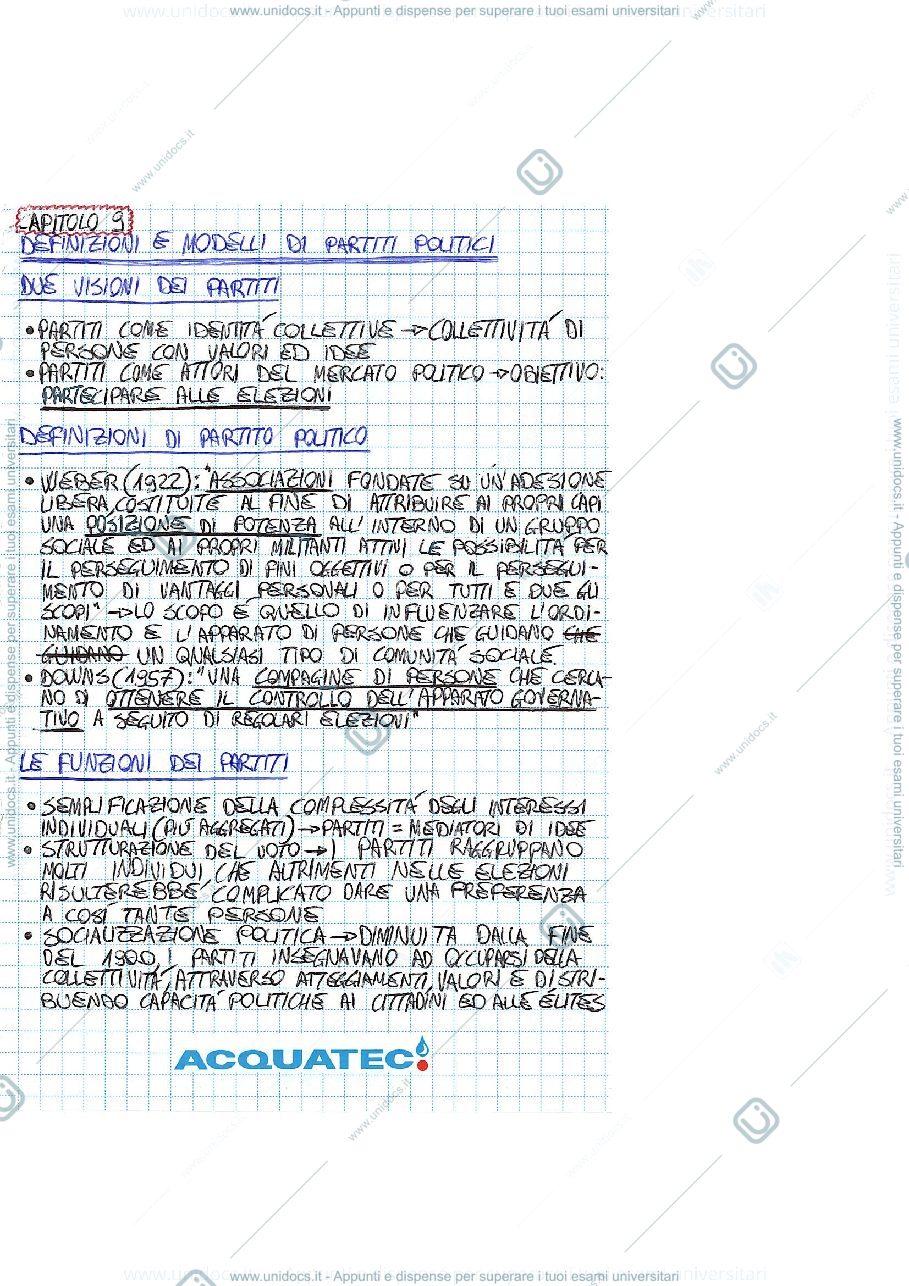 www.unidocs.it - Appunti e dispense per superare i tuoi esami universitari
CAPITOLO 9
DEFINIZIONI E MODELLI DI PARTITI POLITICI
DUE VISIONI DEI PARTITI
• PARTITI COME IDENTITÀ COLLETTIVE → COLLETTIVITÀ DI
PERSONE CON VALORI ED IDEE
• PARTITI COME ATTORI DEL MERCATO POLITICO → OBIETTIVO:
PARTECIPARE ALLE ELEZIONI
DEFINIZIONI DI PARTITO POLITICO
• WEBER (1922): "ASSOCIAZIONI FONDATE SU UN'ADESIONE
LIBERA, COSTITUITE AL FINE DI ATTRIBUIRE AI PROPRI CAPI
UNA POSIZIONE DI POTENZA ALL'INTERNO DI UN GRUPPO
SOCIALE ED AI PROPRI MILITANTI ATTIVI LE POSSIBILITÀ PER
IL PERSEGUIMENTO DI FINI OGGETTIVI O PER IL PERSEGUI-
MENTO DI VANTAGGI PERSONALI O PER TUTTI E DUE GLI
SCOPI" → LO SCOPO È QUELLO DI INFLUENZARE L'ORDI-
NAMENTO E L'APPARATO DI PERSONE CHE GUIDANO CHE
GUIDANO UN QUALSIASI TIPO DI COMUNITÀ SOCIALE.
• DOWNS (1957): "UNA COMPAGINE DI PERSONE CHE CERCA-
NO DI OTTENERE IL CONTROLLO DELL'APPARATO GOVERNA-
TIVO A SEGUITO DI REGOLARI ELEZIONI"
LE FUNZIONI DEI PARTITI
• SEMPLIFICAZIONE DELLA COMPLESSITÀ DEGLI INTERESSI
INDIVIDUALI (PIÙ AGGREGATI) → PARTITI = MEDIATORI DI IDEE
• STRUTTURAZIONE DEL VOTO → I PARTITI RAGGRUPPANO
MOLTI INDIVIDUI, CHE ALTRIMENTI NELLE ELEZIONI
RISULTEREBBE COMPLICATO DARE UNA PREFERENZA
A COSÌ TANTE PERSONE
• SOCIALIZZAZIONE POLITICA → DIMINUITA DALLA FINE
DEL 1900, I PARTITI INSEGNAVANO AD OCCUPARSI DELLA
COLLETTIVITÀ, ATTRAVERSO ATTEGGIAMENTI, VALORI E DISTRI-
BUENDO CAPACITÀ POLITICHE AI CITTADINI ED ALLE ÉLITES
ACQUATEC
www.unidocs.it - Appunti e dispense per superare i tuoi esami universitari